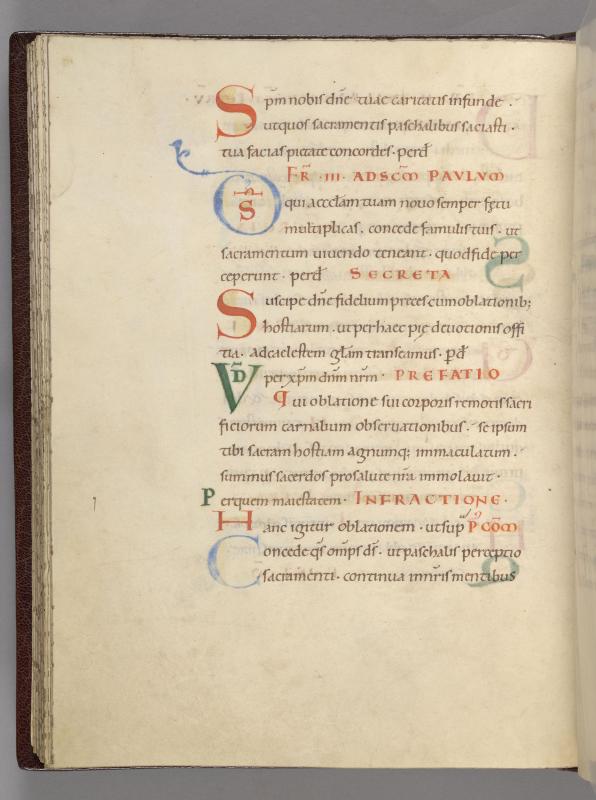 Spm nobis dne tuae caritatis infunde.
utquos sacramentis paschalibus saciasti.
tua facias pietate concordes. perd
FR. III. ADSCM PAVLVM
DS qui aecclam tuam nouo semper fetu
multiplicas. concede famulis tuis. ut
sacramentum uiuendo teneant. quod fide per
ceperunt. perd SECRETA
Suscipe dne fidelium preces cum oblationib;
hostiarum. ut per haec pię deuotionis offi
tia. ad caelestem glam transeamus. pd
VD per xpm dnm nrm. PREFATIO
qui oblatione sui corporis remotis sacri
ficiorum carnalium obseruationibus. se ipsum
tibi sacram hostiam agnumq; immaculatum.
summus sacerdos pro salute nra immolauit.
Per quem maiestatem. INFRACTIONE.
Hanc igitur oblationem. ut sup P COM
Concede qs omps ds. ut paschalis perceptio
sacramenti. continua in nris mentibus